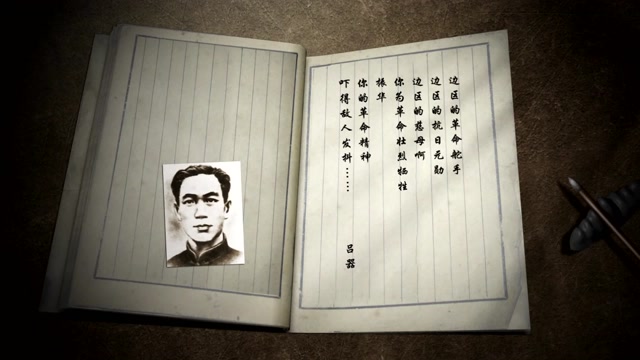 边区的革命舵手
边区的抗日元勋
边区的慈母啊
你为革命壮烈牺牲
振华
你的革命精神
吓得敌人发抖……
吕器